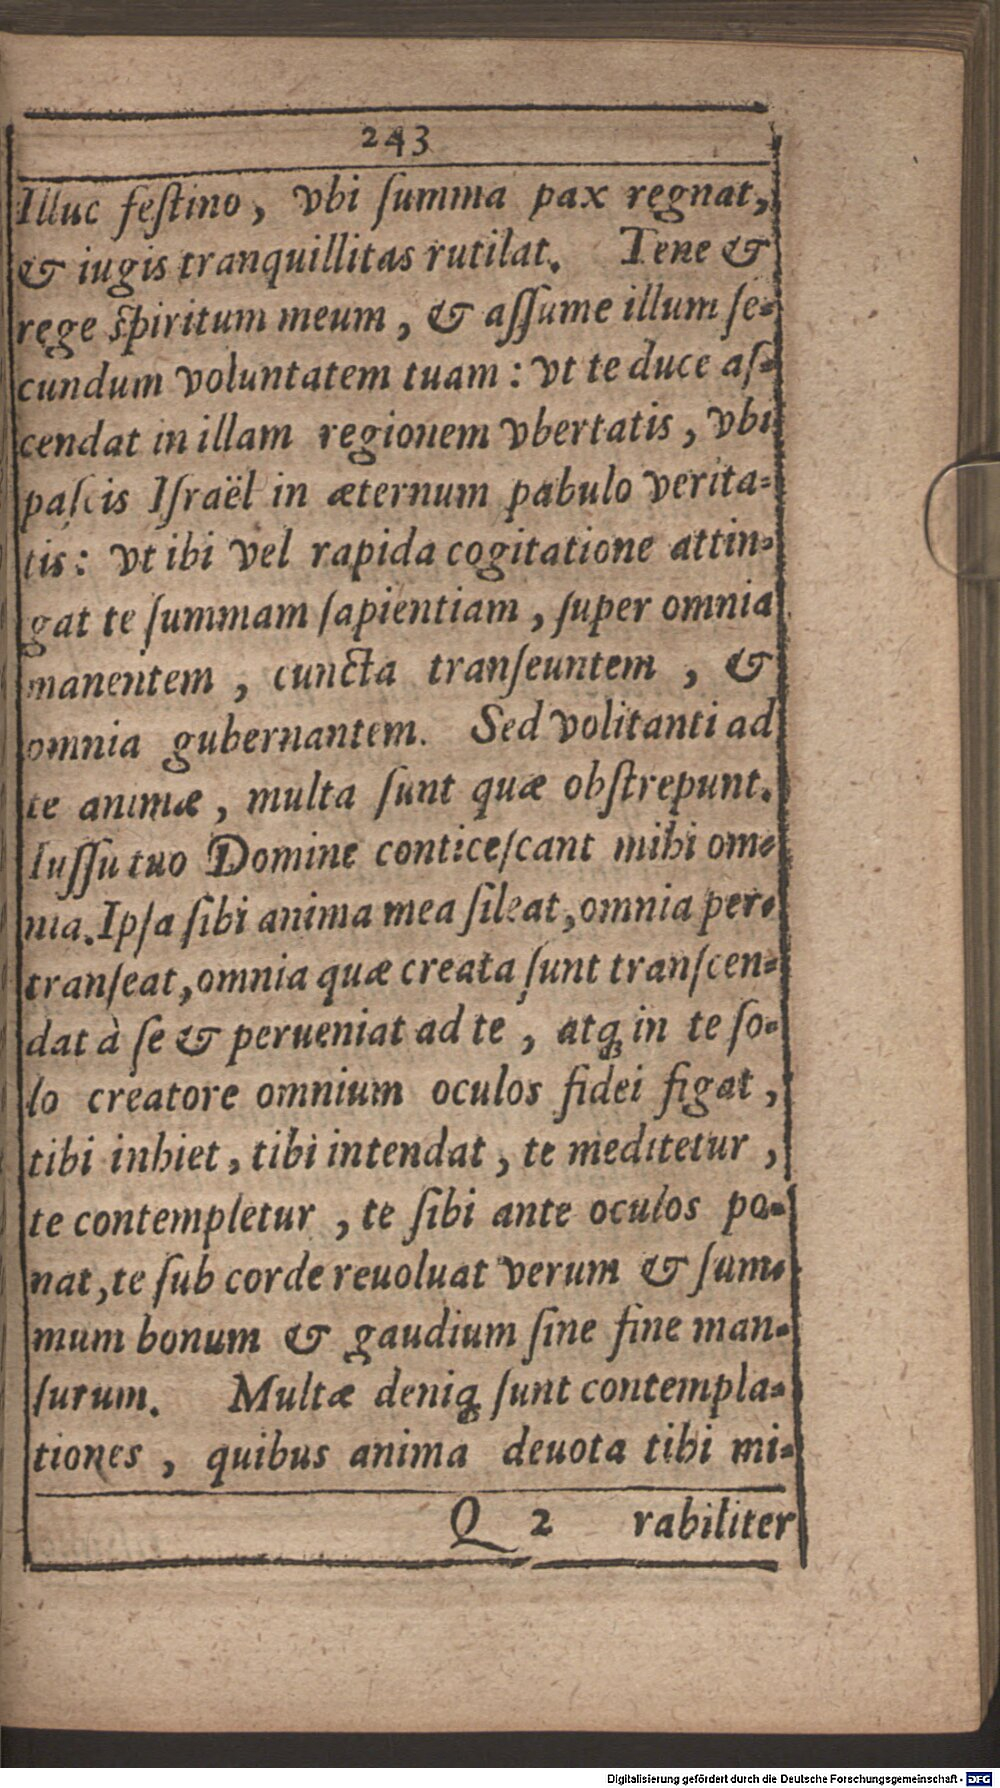 243
Illuc feſtino, vbi ſumma pax regnat,
& iugis tranquillitas rutilat. Tene &
rege ſpiritum meum, & aſſume illum ſe-
cundum voluntatem tuam: vt te duce aſ-
cendat in illam regionem vbertatis, vbi
paſcis Iſraël in æternum pabulo verita-
tis: vt ibi vel rapida cogitatione attin-
gat te ſummam ſapientiam, ſuper omnia
manentem, cuncta tranſeuntem, &
omnia gubernantem. Sed volitanti ad
te animæ, multa ſunt quæ obſtrepunt.
Iuſſu tuo Domine conticeſcant mihi om-
nia. Ipſa ſibi anima mea ſileat, omnia per-
tranſeat, omnia quæ creata ſunt tranſcen-
dat à ſe & perueniat ad te, atq; in te ſo-
lo creatore omnium oculos fidei figat,
tibi inhiet, tibi intendat, te meditetur,
te contempletur, te ſibi ante oculos po-
nat, te ſub corde reuoluat verum & ſum-
mum bonum & gaudium ſine fine man-
ſurum. Multæ deniq; ſunt contempla-
tiones, quibus anima deuota tibi mi-
Q 2 rabiliter
Digitalisierung gefördert durch die Deutsche Forschungsgemeinschaft - DFG